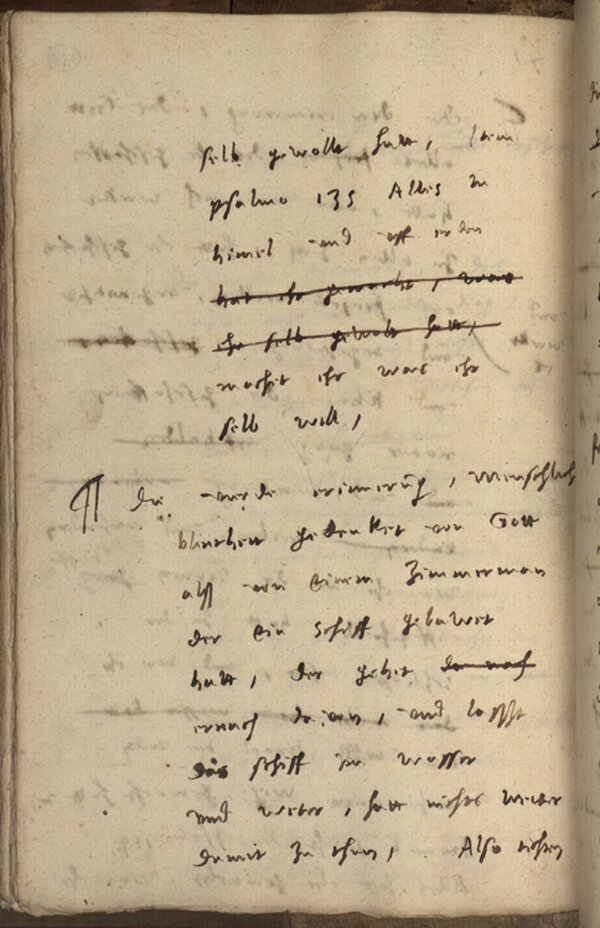 selb gewollt hatt, Item
psalmo 135 Alles in
himel und auff erden
hat ehr gemacht, was
ehr selb gewolt hatt,
machet ehr was ehr
selb will,
¶ Die vierde erinnerung, Menschlich
blindheit gedenket von Gott
alss von einem Zimmerman
der ein schiff gebawet
hatt, der gehet dar nach
ernach davon, und lasst
das schiff im wasser
und wetter, hatt nichts weiter
damit zu thun, Also richten